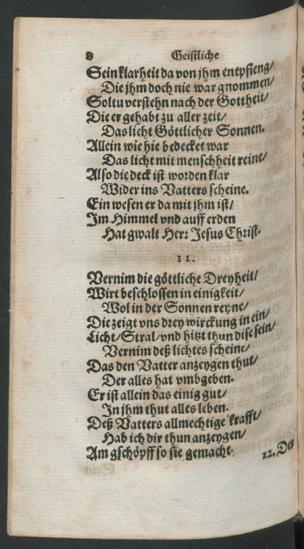 8 Geistliche
Sein klarheit da von jhm entpfieng/
Die jhm doch nie war gnommen/
Soltu verstehn nach der Gottheit/
Die er gehabt zu aller zeit/
Das licht Göttlicher Sonnen.
Allein wie hie bedecket war
Das licht mit menschheit reine/
Also die deck ist worden klar
Wider ins Vatters scheine.
Ein wesen er da mit jhm ist/
Im Himmel vnd auff erden
Hat gwalt Herr Jesus Christ.
11.
Vernim die göttliche Dreyheit/
Wirt beschlossen in einigkeit/
Wol in der Sonnen reyne/
Die zeigt vns drey wirckung in ein/
Licht/Stral/vnd hitzt thun dise sein/
Vernim deß lichtes scheine/
Das den Vatter anzeygen thut/
Der alles hat vmbgeben.
Er ist allein das einig gut/
In jhm thut alles leben.
Deß Vatters allmechtige krafft/
Hab ich dir thun anzeygen/
Am gschöpff so sie gemacht.
12. Des